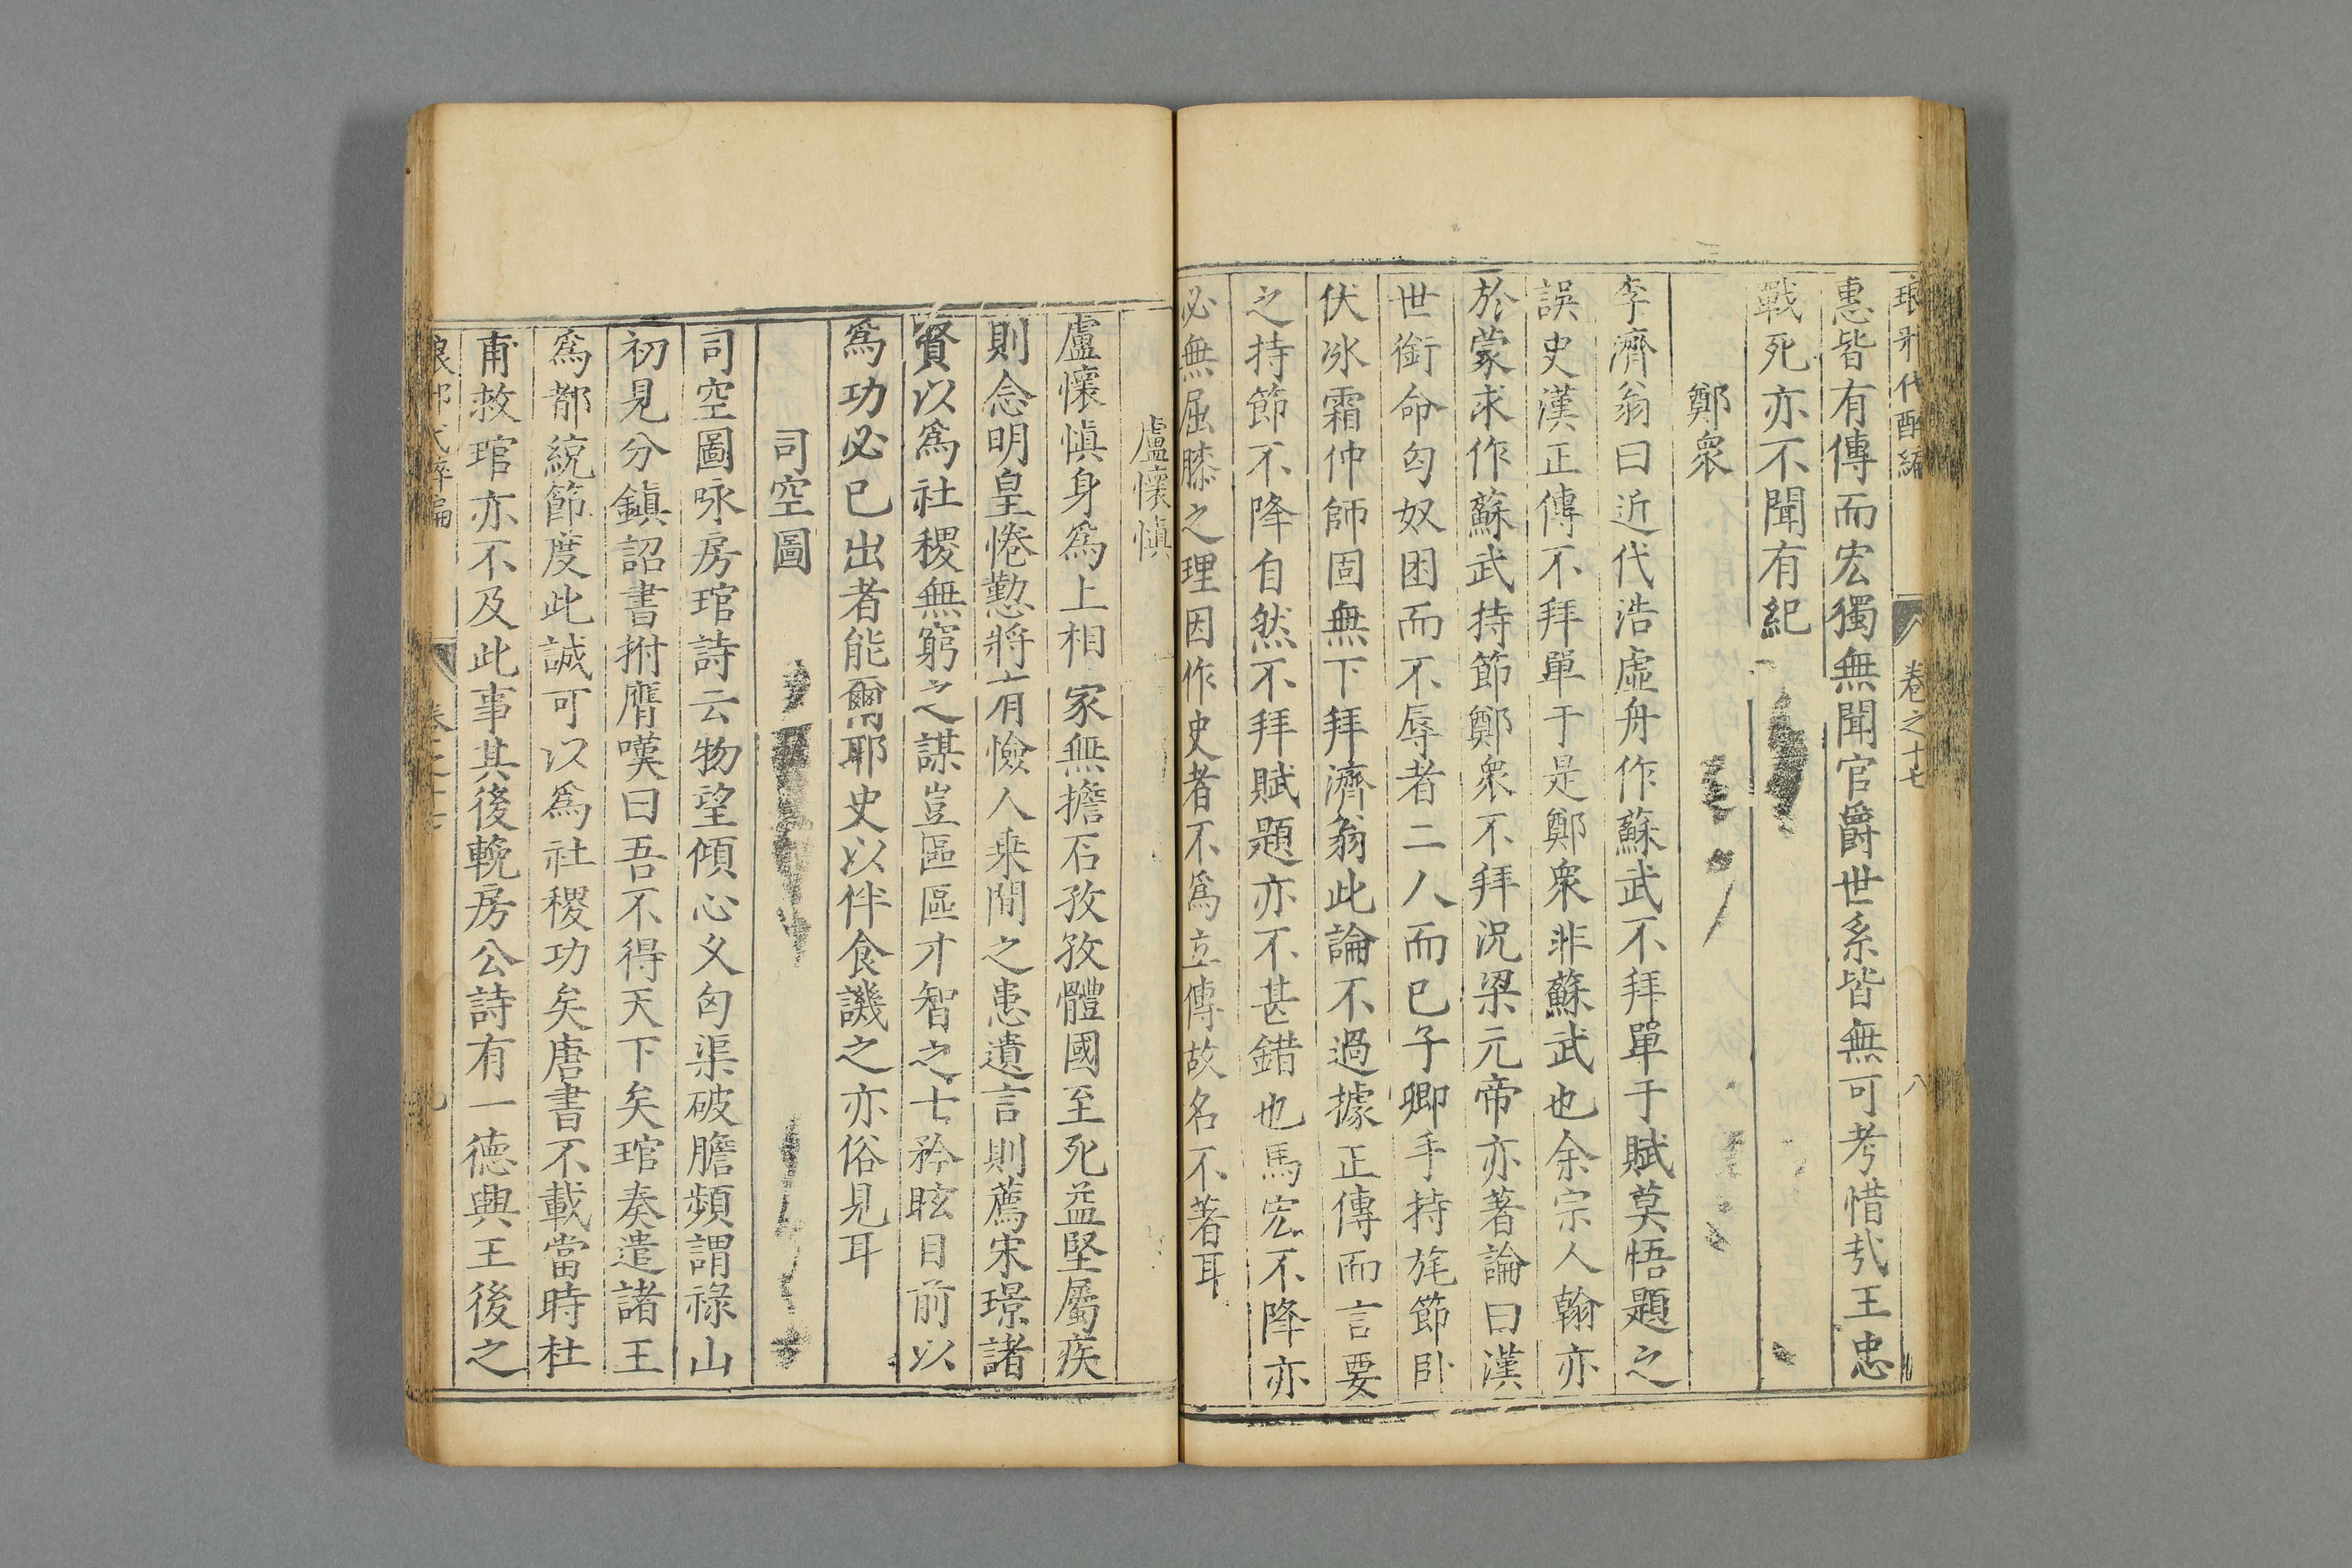 琅邪代醉編 卷之十七 八
惠皆有傳而宏獨無聞官爵世系皆無可考惜㢤王忠
戰死亦不聞有紀
鄭衆
李濟翁曰近代浩虛舟作蘇武不拜單于賦莫悟題之
誤史漢正傳不拜單于是鄭衆非蘇武也余宗人翰亦
於蒙求作蘇武持節鄭衆不拜況梁元帝亦著論曰漢
世銜命匈奴困而不辱者二人而已子卿手持旄節卧
伏冰霜仲師固無下拜濟翁此論不過據正傳而言要
之持節不降自然不拜賦題亦不甚錯也馬宏不降亦
必無屈膝之理因作史者不爲立傳故名不著耳
盧懷愼
盧懷愼身爲上相家無擔石孜孜體國至死益堅屬疾
則念明皇惓懃將有憸人乘間之患遺言則薦宋璟諸
賢以爲社稷無窮之謀豈區區才智之士矜眩目前以
爲功必已出者能爾耶史以伴食譏之亦俗見耳
司空圖
司空圖咏房琯詩云物望傾心久匈渠破膽頻謂祿山
初見分鎭詔書拊膺嘆曰吾不得天下矣琯奏遣諸王
爲都統節度此誠可以爲社稷功矣唐書不載當時杜
甫救琯亦不及此事其後輓房公詩有一德興王後之
琅邪代醉編 卷之十七 九